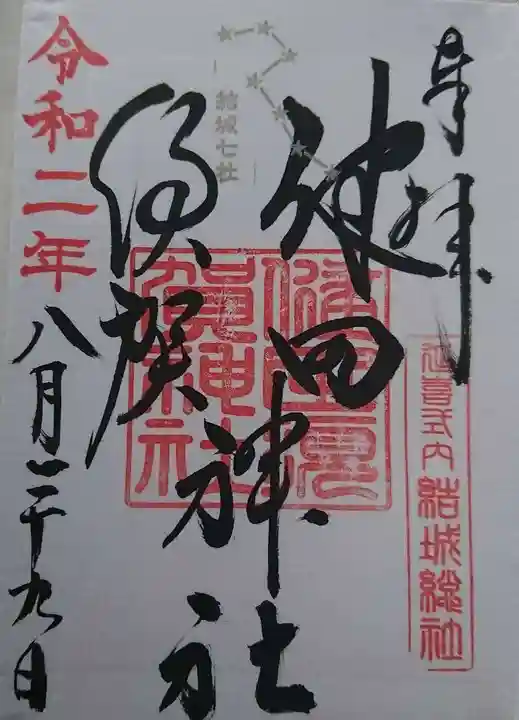 奉拝
延喜式内 結城総社
健田
須賀
神社
健田須賀神社
結城七社
令和二年
八月二十九日